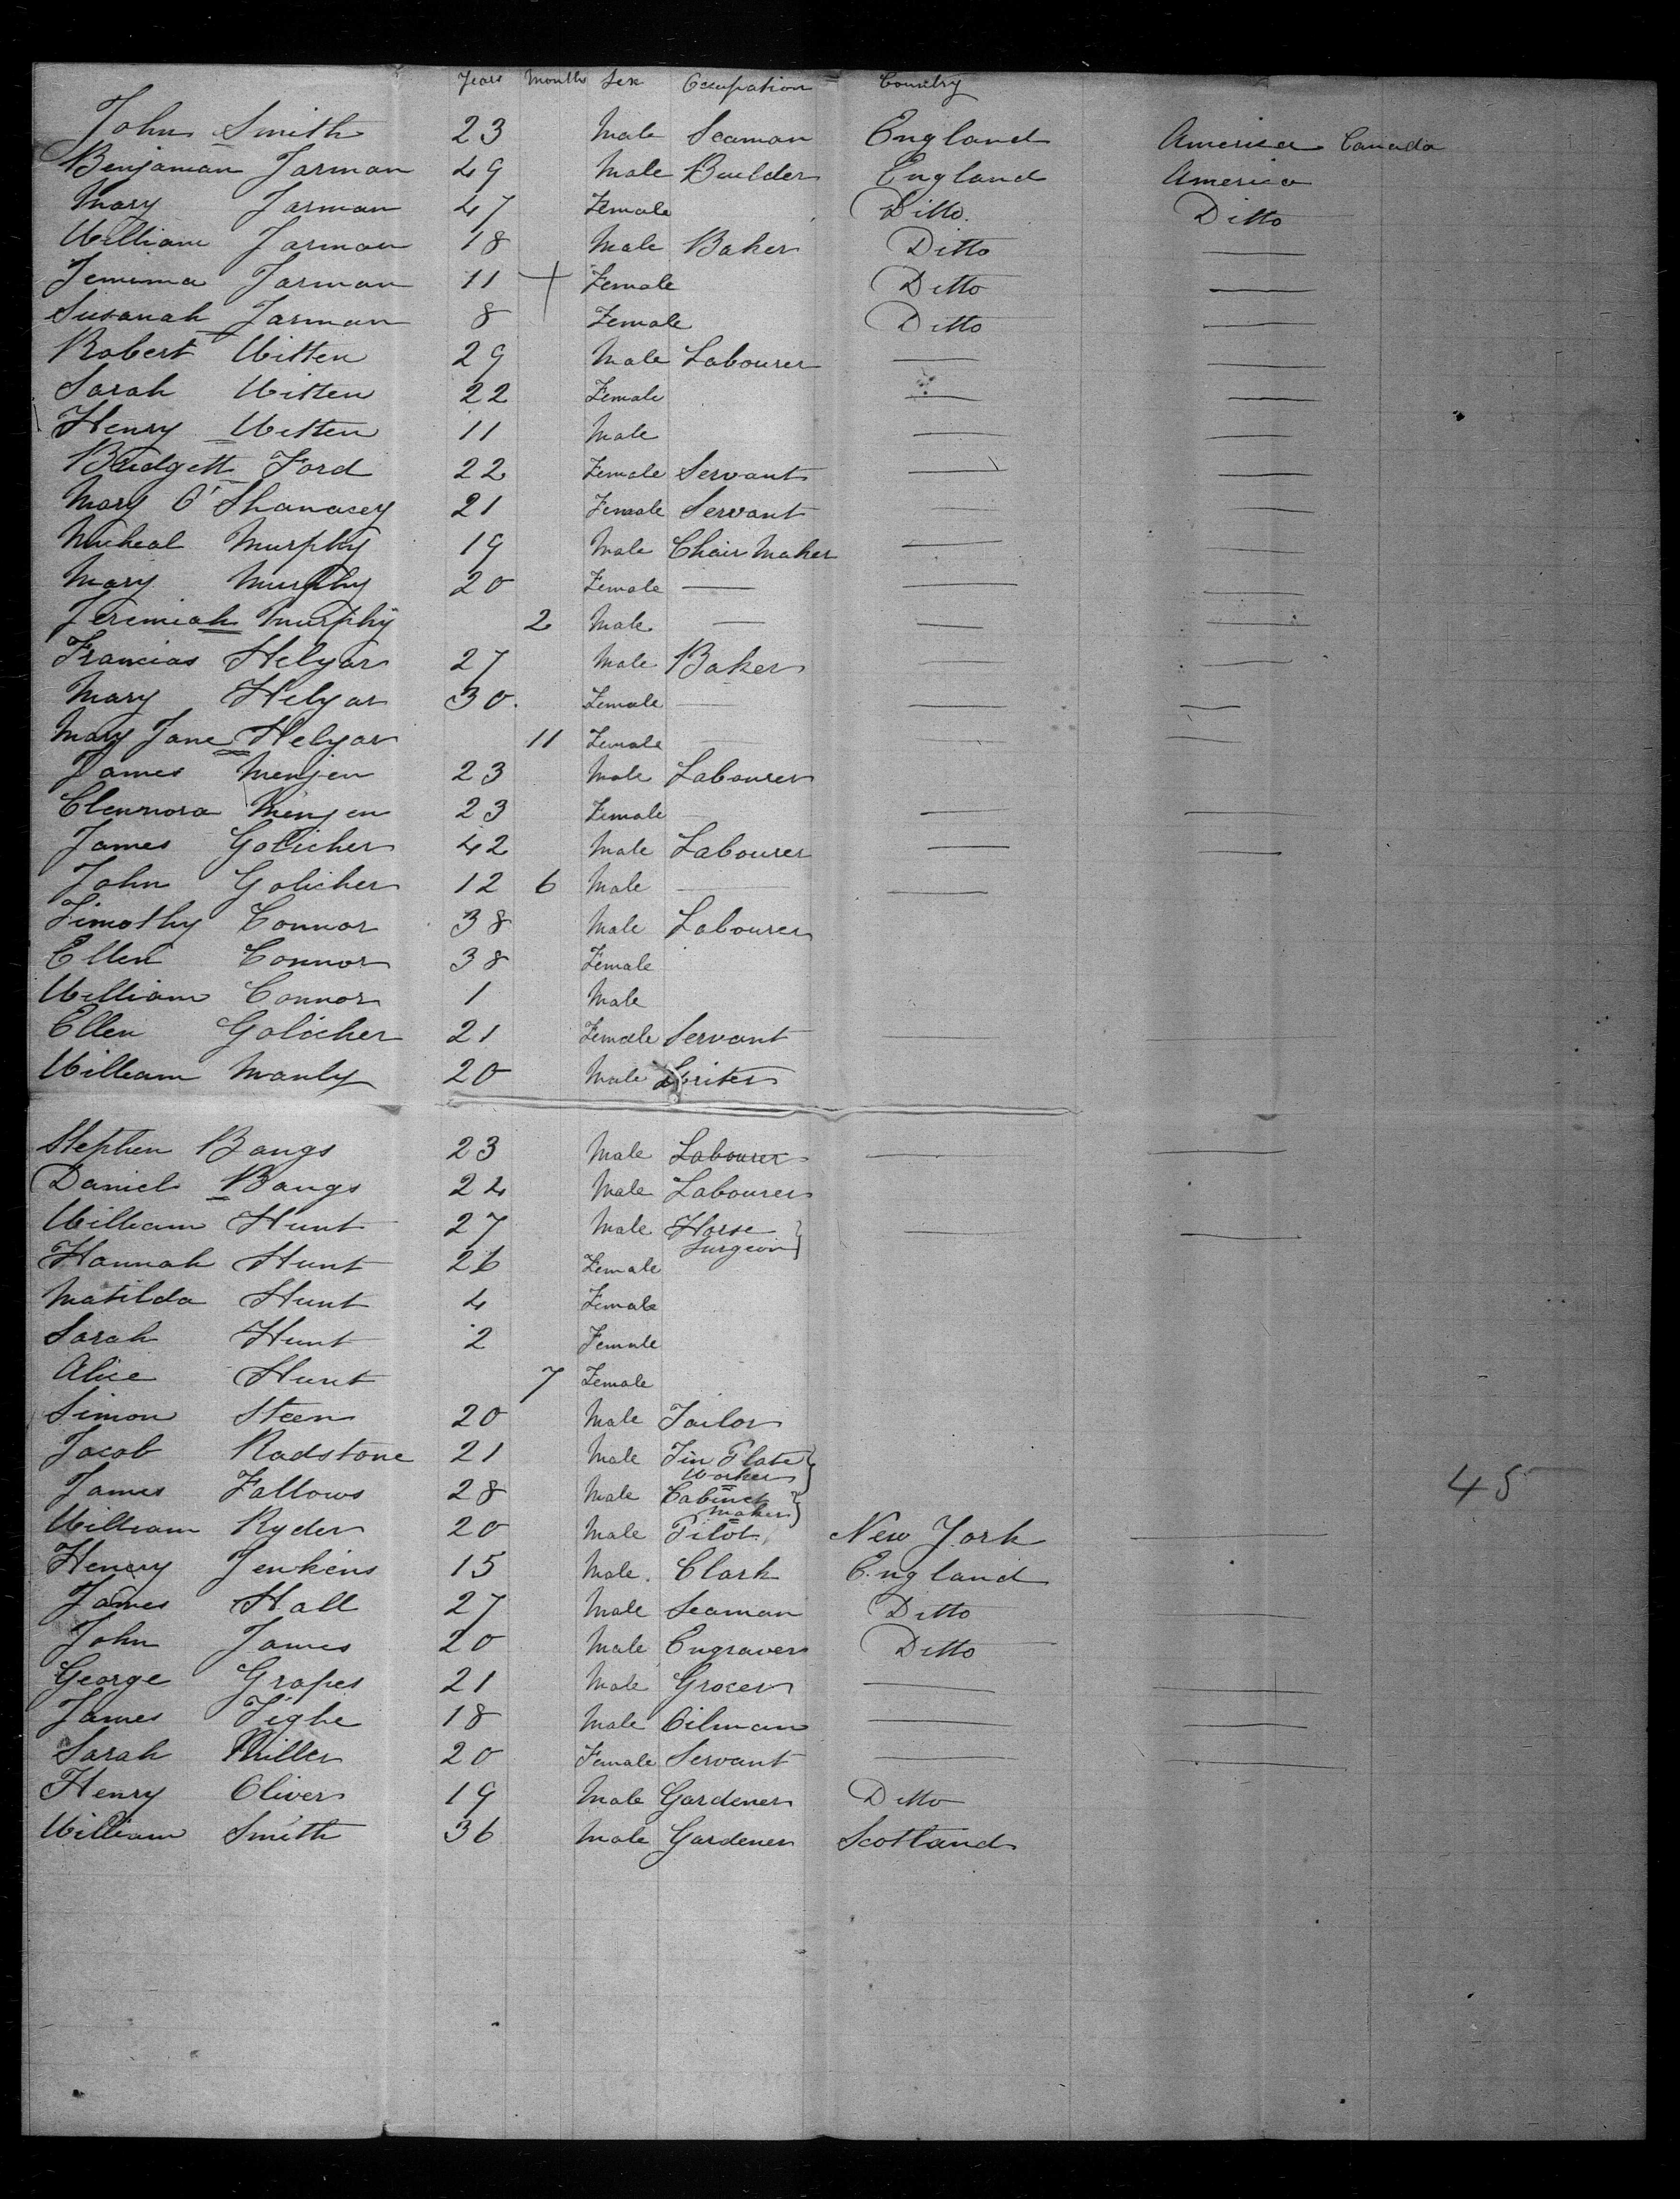 Years Month Sex Occupation Country
John Smith 23 Male Seaman England America Canada
Benjaman Jarman 49 Male Builder England America
Mary Jarman 47 Female Ditto. Ditto
William Jarman 18 Male Baker Ditto —
Jemima Jarman 11 + Female Ditto —
Susanah Jarman 8 Female Ditto —
Robert Witten 29 Male Labourer — —
Sarah Witten 22 Female — —
Henry Witten 11 Male — —
Bridgett Ford 22 Female Servant — —
Mary O'Shanasey 21 Female Servant — —
Micheal Murphy 19 Male Chair Maker — —
Mary Murphy 20 Female — — —
Jeremiah Murphy 2 Male — — —
Francias Helyar 27 Male Baker — —
Mary Helyar 30. Female — — —
Mary Jane Helyar 11 Female — — —
James Menjen 23 Male Labourer
Menjen 23 Female — — —
James Golicher 42 Male Labourer — —
John Golicher 12 6 Male — —
Timothy Connor 38 Male Labourer
Ellen Connor 38 Female
William Connor 1 Male
Ellen Golicher 21 Female Servant — —
William Manly 20 Male
Stephen Bangs 23 Male Labourer — —
Daniel Bangs 24 Male Labourer
William Hunt 27 Male Horse — —
Surgeon
Hannah Hunt 26 Female
Matilda Hunt 4 Female
Sarah Hunt 2 Female
Alice Hunt 7 Female
Simon Steen 20 Male Tailor
Jacob Radstone 21 Male Tin Plate
Worker
James Fallows 28 Male Cabinet 45
Maker
William Ryder 20 Male Pilot New York —
Henery Jenkins 15 Male. Clark England
James Hall 27 Male Seaman Ditto —
John James 20 Male Engraver Ditto
George Grapes 21 Male Grocer — —
James Tighe 18 Male Oilman — —
Sarah Miller 20 Female Servant — —
Henry Oliver 19 Male Gardener Ditto
William Smith 36 Male Gardener Scotland